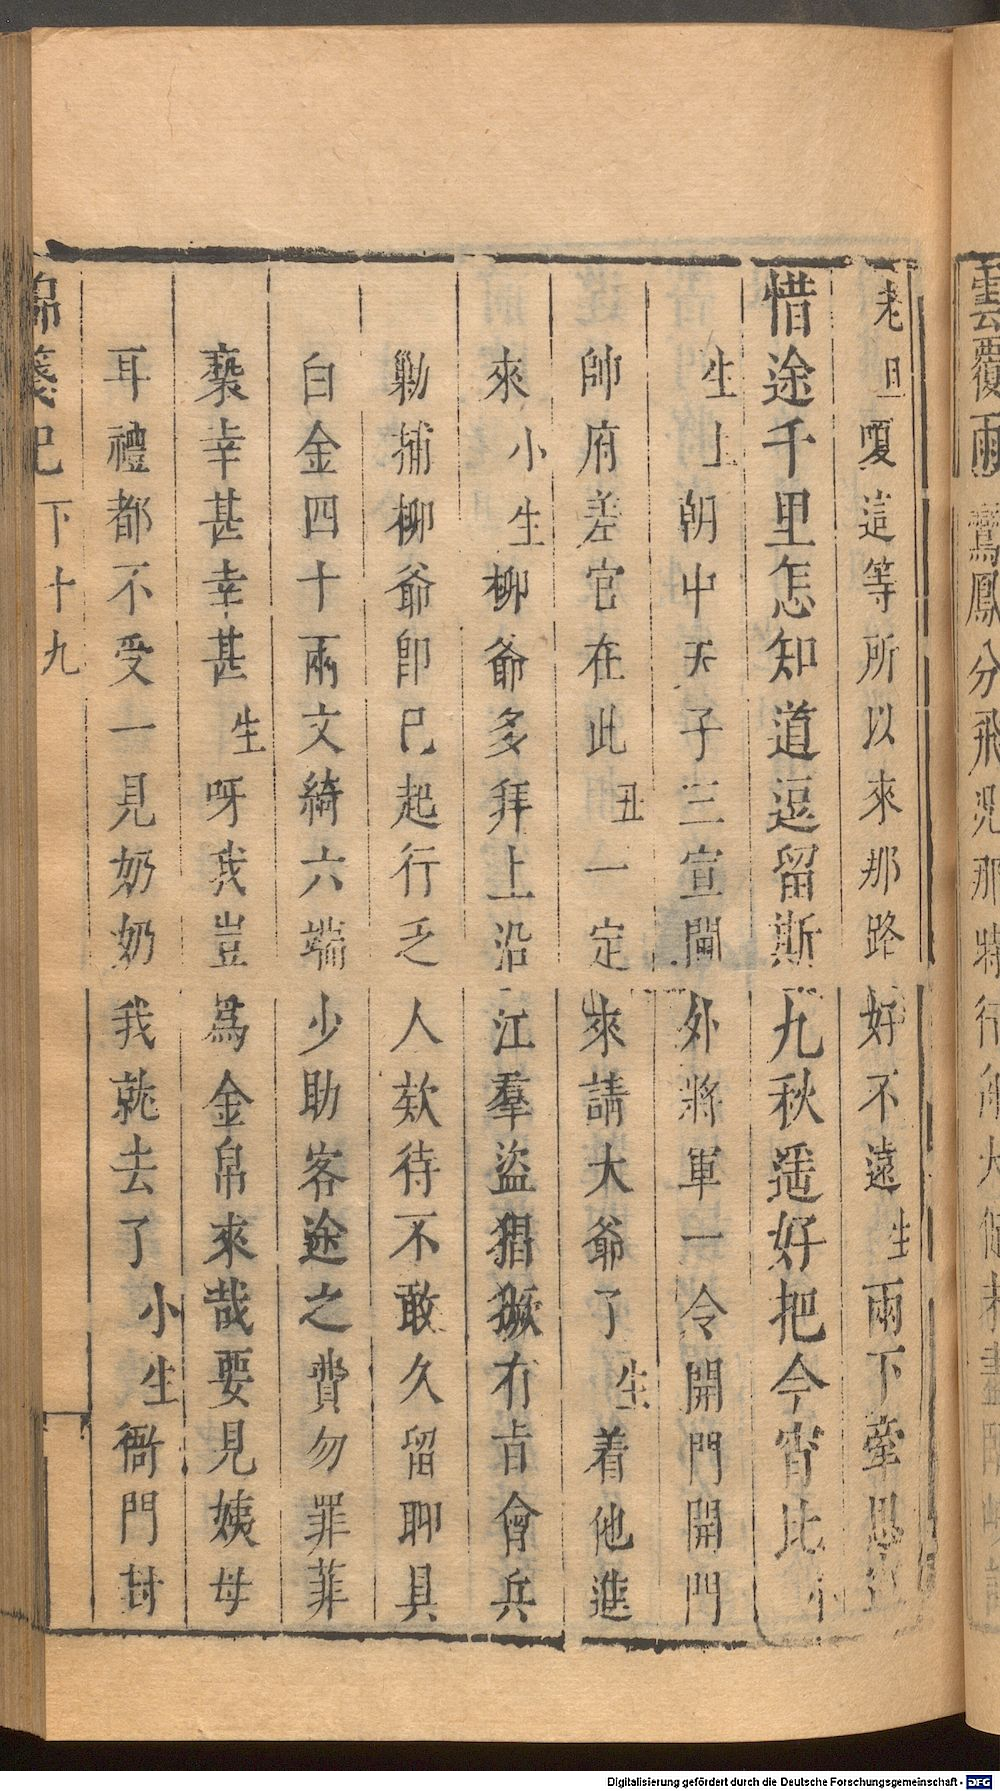 雲覆雨鸞鳳分飛況那
老旦嗄這等所以來那路好不遠生兩下牽思
惜途千里怎知道逗留斯九秋遥好把今宵比小
生上朝中天子三宣閫外將軍一令開門開門
帥府差官在此丑一定來請大爺了生着他進
來小生柳爺多拜上沿江羣盗猖獗有旨會兵
勦捕柳爺卽已起行乏人欵待不敢久留聊具
白金四十兩文綺六端少助客途之費勿罪菲
䙝幸甚幸甚生呀我豈爲金帛來哉要見姨母
耳禮都不受一見奶奶我就去了小生衙門封
錦箋記 下 十九
Digitalisierung gefördert durch die Deutsche Forschungsgemeinschaft - DFG